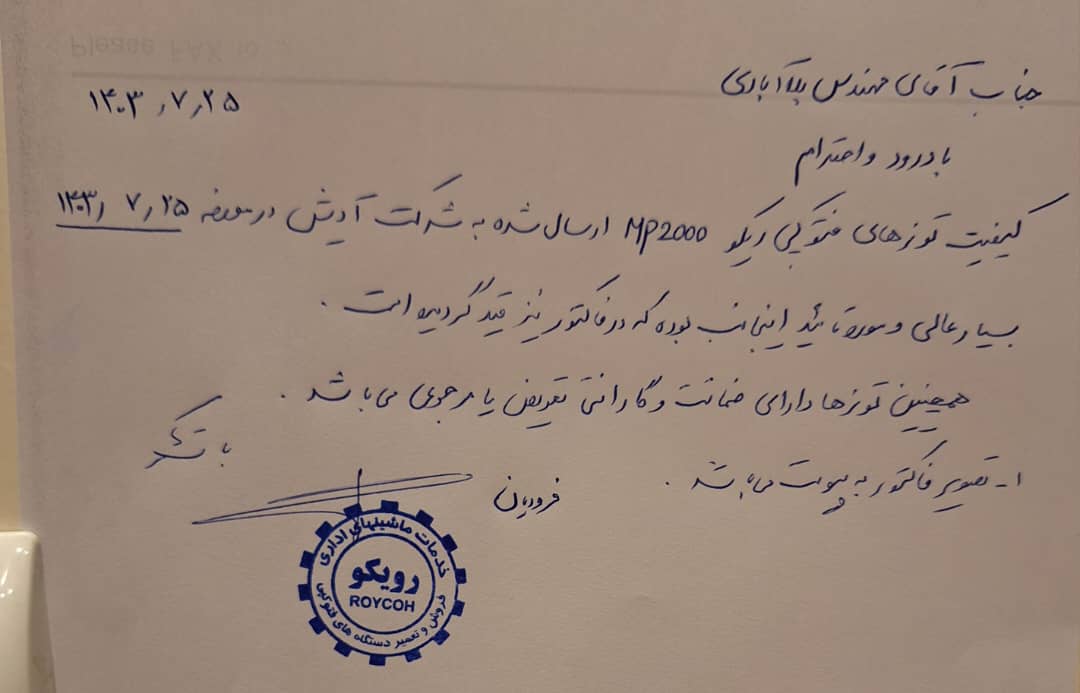 جناب آقای مهندس بلاآبادی
۱۴۰۳٫۷٫۲۵
با درود و احترام
کیفیت تونرهای فتوکپی ریکو MP2000 ارسال شده به شرکت آرش در مورخه ۱۴۰۳٫۷٫۲۵
بسیار عالی و مورد تائید اینجانب بوده که در فاکتور نیز قید گردیده است.
همچنین تونرها دارای ضمانت و گارانتی تعویض یا مرجوعی می باشد.
۱ـ تصویر فاکتور به پیوست می باشد.
با تشکر
فروریان
خدمات ماشینهای اداری
رویکو
ROYCOH
فروش و تعمیر دستگاه های فتوکپی
Please FAX to